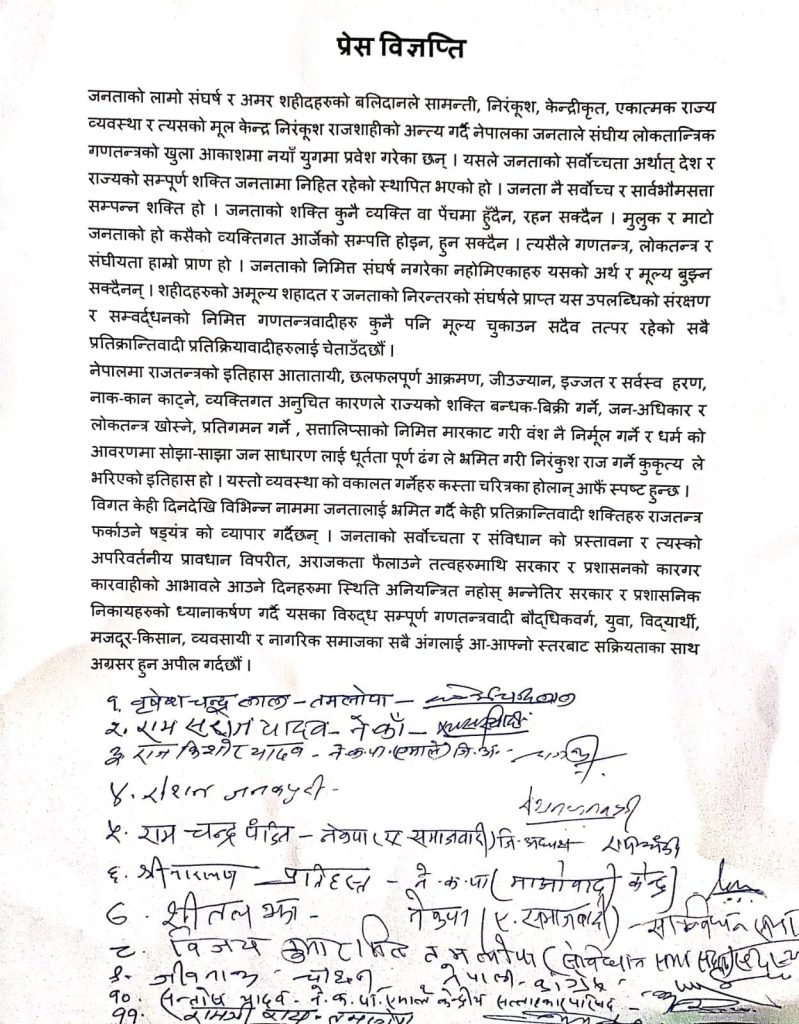 प्रेस विज्ञप्ति
जनताको लामो संघर्ष र अमर शहीदहरुको बलिदानले सामन्ती, निरंकूश, केन्द्रीकृत, एकात्मक राज्य
व्यवस्था र त्यसको मूल केन्द्र निरंकूश राजशाहीको अन्त्य गर्दै नेपालका जनताले संघीय लोकतान्त्रिक
गणतन्त्रको खुला आकाशमा नयाँ युगमा प्रवेश गरेका छन् । यसले जनताको सर्वोच्चता अर्थात् देश र
राज्यको सम्पूर्ण शक्ति जनतामा निहित रहेको स्थापित भएको हो । जनता नै सर्वोच्च र सार्वभौमसत्ता
सम्पन्न शक्ति हो । जनताको शक्ति कुनै व्यक्ति वा पेंचमा हुँदैन, रहन सक्दैन । मुलुक र माटो
जनताको हो कसैको व्यक्तिगत आर्जेको सम्पत्ति होइन, हुन सक्दैन । त्यसैले गणतन्त्र, लोकतन्त्र र
संघीयता हाम्रो प्राण हो । जनताको निमित्त संघर्ष नगरेका नहोमिएकाहरु यसको अर्थ र मूल्य बुझ्न
सक्दैनन् । शहीदहरुको अमूल्य शहादत र जनताको निरन्तरको संघर्षले प्राप्त यस उपलब्धिको संरक्षण
र सम्वर्द्धनको निमित्त गणतन्त्रवादीहरु कुनै पनि मूल्य चुकाउन सदैव तत्पर रहेको सबै
प्रतिक्रान्तिवादी प्रतिक्रियावादीहरुलाई चेताउँदछौं ।
नेपालमा राजतन्त्रको इतिहास आतातायी, छलफलपूर्ण आक्रमण, जीउज्यान, इज्जत र सर्वस्व हरण,
नाक-कान काट्ने, व्यक्तिगत अनुचित कारणले राज्यको शक्ति बन्धक-बिक्री गर्ने, जन-अधिकार र
लोकतन्त्र खोस्ने, प्रतिगमन गर्ने , सत्तालिप्साको निमित्त मारकाट गरी वंश नै निर्मूल गर्ने र धर्म को
आवरणमा सोझा-साझा जन साधारण लाई धूर्तता पूर्ण ढंग ले भ्रमित गरी निरंकुश राज गर्ने कुकृत्य ले
भरिएको इतिहास हो । यस्तो व्यवस्था को वकालत गर्नेहरु कस्ता चरित्रका होलान् आफैं स्पष्ट हुन्छ ।
विगत केही दिनदेखि विभिन्न नाममा जनतालाई भ्रमित गर्दै केही प्रतिक्रान्तिवादी शक्तिहरु राजतन्त्र
फर्काउने षड्यंत्र को व्यापार गर्दैछन् । जनताको सर्वोच्चता र संविधान को प्रस्तावना र त्यस्को
अपरिवर्तनीय प्रावधान विपरीत, अराजकता फैलाउने तत्वहरुमाथि सरकार र प्रशासनको कारगर
कारवाहीको आभावले आउने दिनहरुमा स्थिति अनियन्त्रित नहोस् भन्नेतिर सरकार र प्रशासनिक
निकायहरुको ध्यानाकर्षण गर्दै यसका विरुद्ध सम्पूर्ण गणतन्त्रवादी बौद्धिकवर्ग, युवा, विद्यार्थी,
मजदूर-किसान, व्यवसायी र नागरिक समाजका सबै अंगलाई आ-आफ्नो स्तरबाट सक्रियताका साथ
अग्रसर हुन अपील गर्दछौं ।
१. वृषेश चन्द्र लाल - तमलोपा -
२. राम सरोज यादव - ने काँ -
३. राज किशोर यादव - ने.क.पा. (एमाले) जि.अ. -
४. रोशन जनकपुरी -
५. राम चन्द्र पंडित - नेकपा (ए. समाजवादी) जि. अध्यक्ष
६. श्रीनारायण - ने.क.पा (माओवादी केन्द्र)
७. शीतल झा - नेकपा (ए. समाजवादी) -
८. विजय कुमार तमलोपा
९. जीवनाथ चौधरी नेपाली काँग्रेस
१०. सन्तोष यादव - ने.क.पा. एमाले केन्द्रीय सल्लाहकार परिषद
११.